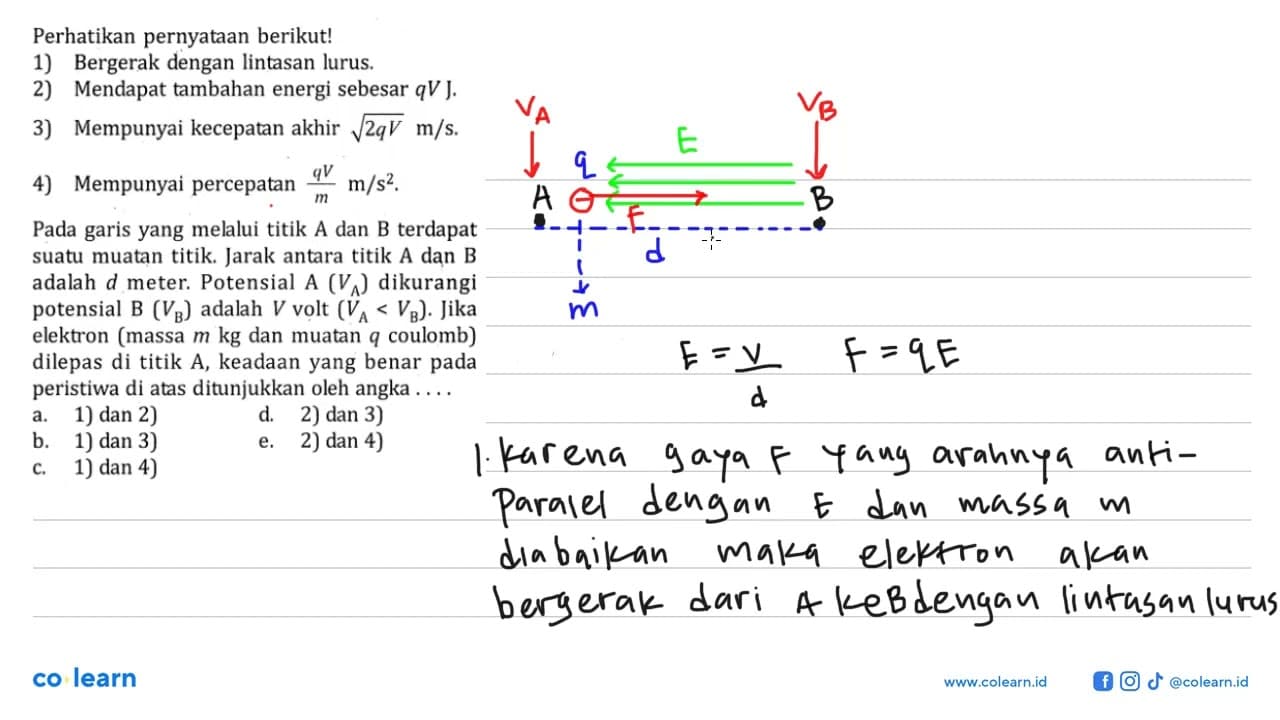 Perhatikan pernyataan berikut!
1) Bergerak dengan lintasan lurus.
2) Mendapat tambahan energi sebesar qV J.
3) Mempunyai kecepatan akhir √2qV m/s.
4) Mempunyai percepatan qV/m m/s².
Pada garis yang melalui titik A dan B terdapat
suatu muatan titik. Jarak antara titik A dan B
adalah d meter. Potensial A (V_A) dikurangi
potensial B (V_B) adalah V volt (V_A < V_B). Jika
elektron (massa m kg dan muatan q coulomb)
dilepas di titik A, keadaan yang benar pada
peristiwa di atas ditunjukkan oleh angka . . . .
a. 1) dan 2) d. 2) dan 3)
b. 1) dan 3) e. 2) dan 4)
c. 1) dan 4)
V_A V_B
E
q
A B
F
d
m
E = V/d F = qE
1. Karena gaya F yang arahnya anti-
Paralel dengan E dan massa m
diabaikan maka elektron akan
bergerak dari A ke B dengan lintasan lurus
co learn
www.colearn.id @colearn.id